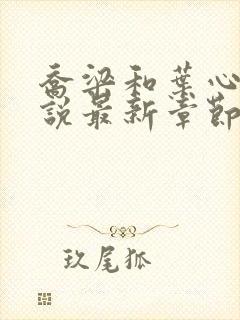 喬梁和葉心
說最新章節
玖尾狐